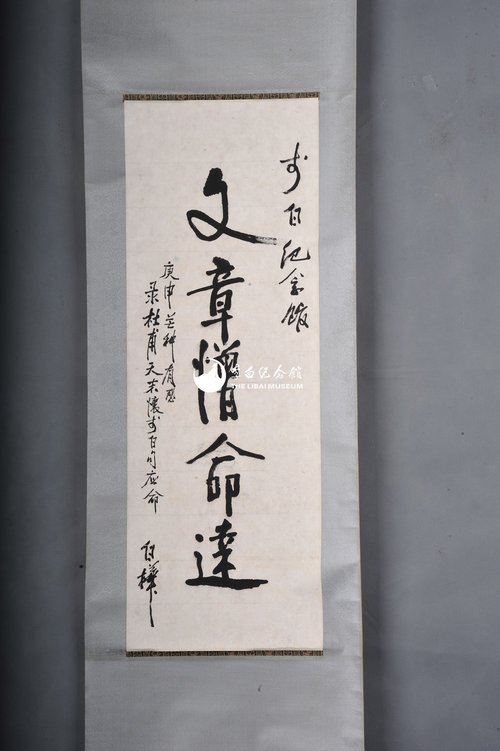 李白纪念馆
文章憎命達
庚申芒种有感
录杜甫天末懷李白句应命
白樺
李白纪念館
THE LIBAI MUSEUM